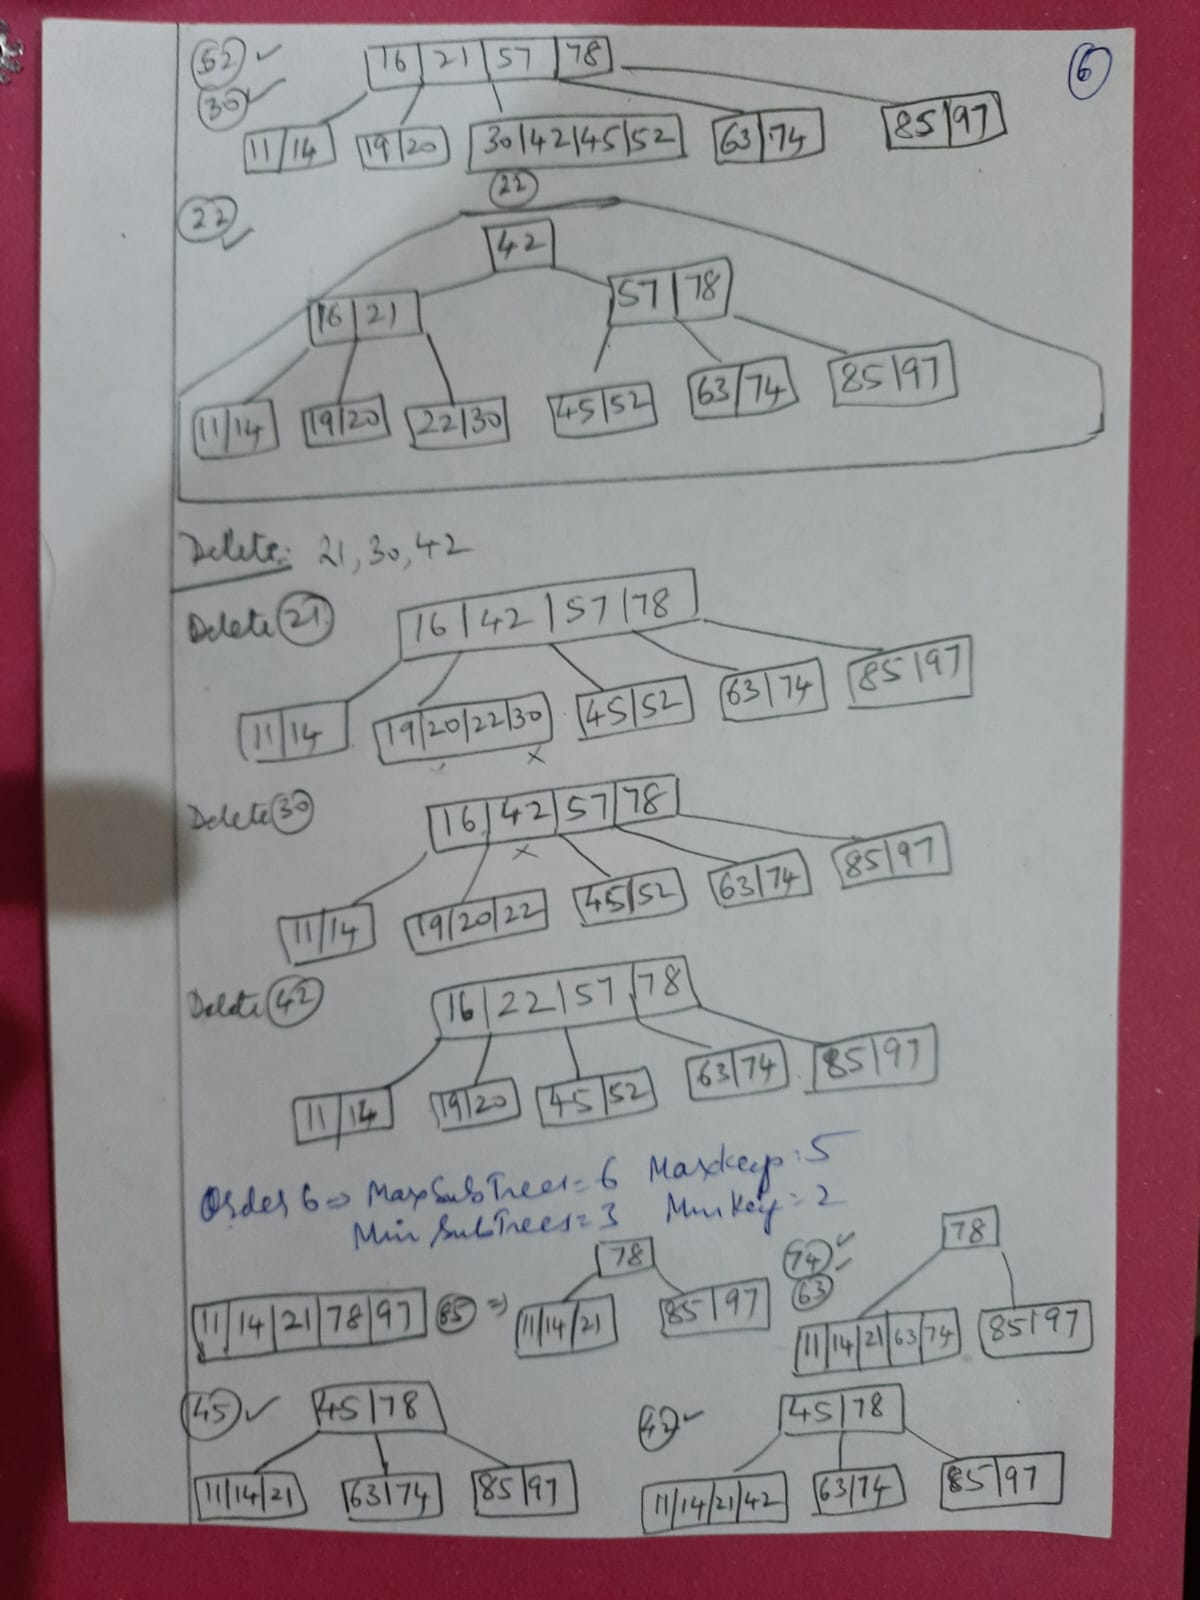 52 ✓ 16|21|57|78 6
30 ✓
11|14 19|20 30|42|45|52 63|74 85|97
22
22 ✓
42
16|21 57|78
11|14 19|20 22|30 45|52 63|74 85|97
Delete: 21, 30, 42
Delete 21 16|42|57|78
11|14 19|20|22|30 45|52 63|74 85|97
×
Delete 30 16|42|57|78
×
11|14 19|20|22 45|52 63|74 85|97
Delete 42 16|22|57|78
11|14 19|20 45|52 63|74 85|97
Order 6 => MaxSubTrees = 6 Maxkeys: 5
Min SubTrees = 3 Min Key = 2
78 74 ✓ 78
63 ✓
11|14|21|78|97 85 => 11|14|21 85|97 11|14|21|63|74 85|97
45 ✓ 45|78 42 ✓ 45|78
11|14|21 63|74 85|97 11|14|21|42 63|74 85|97